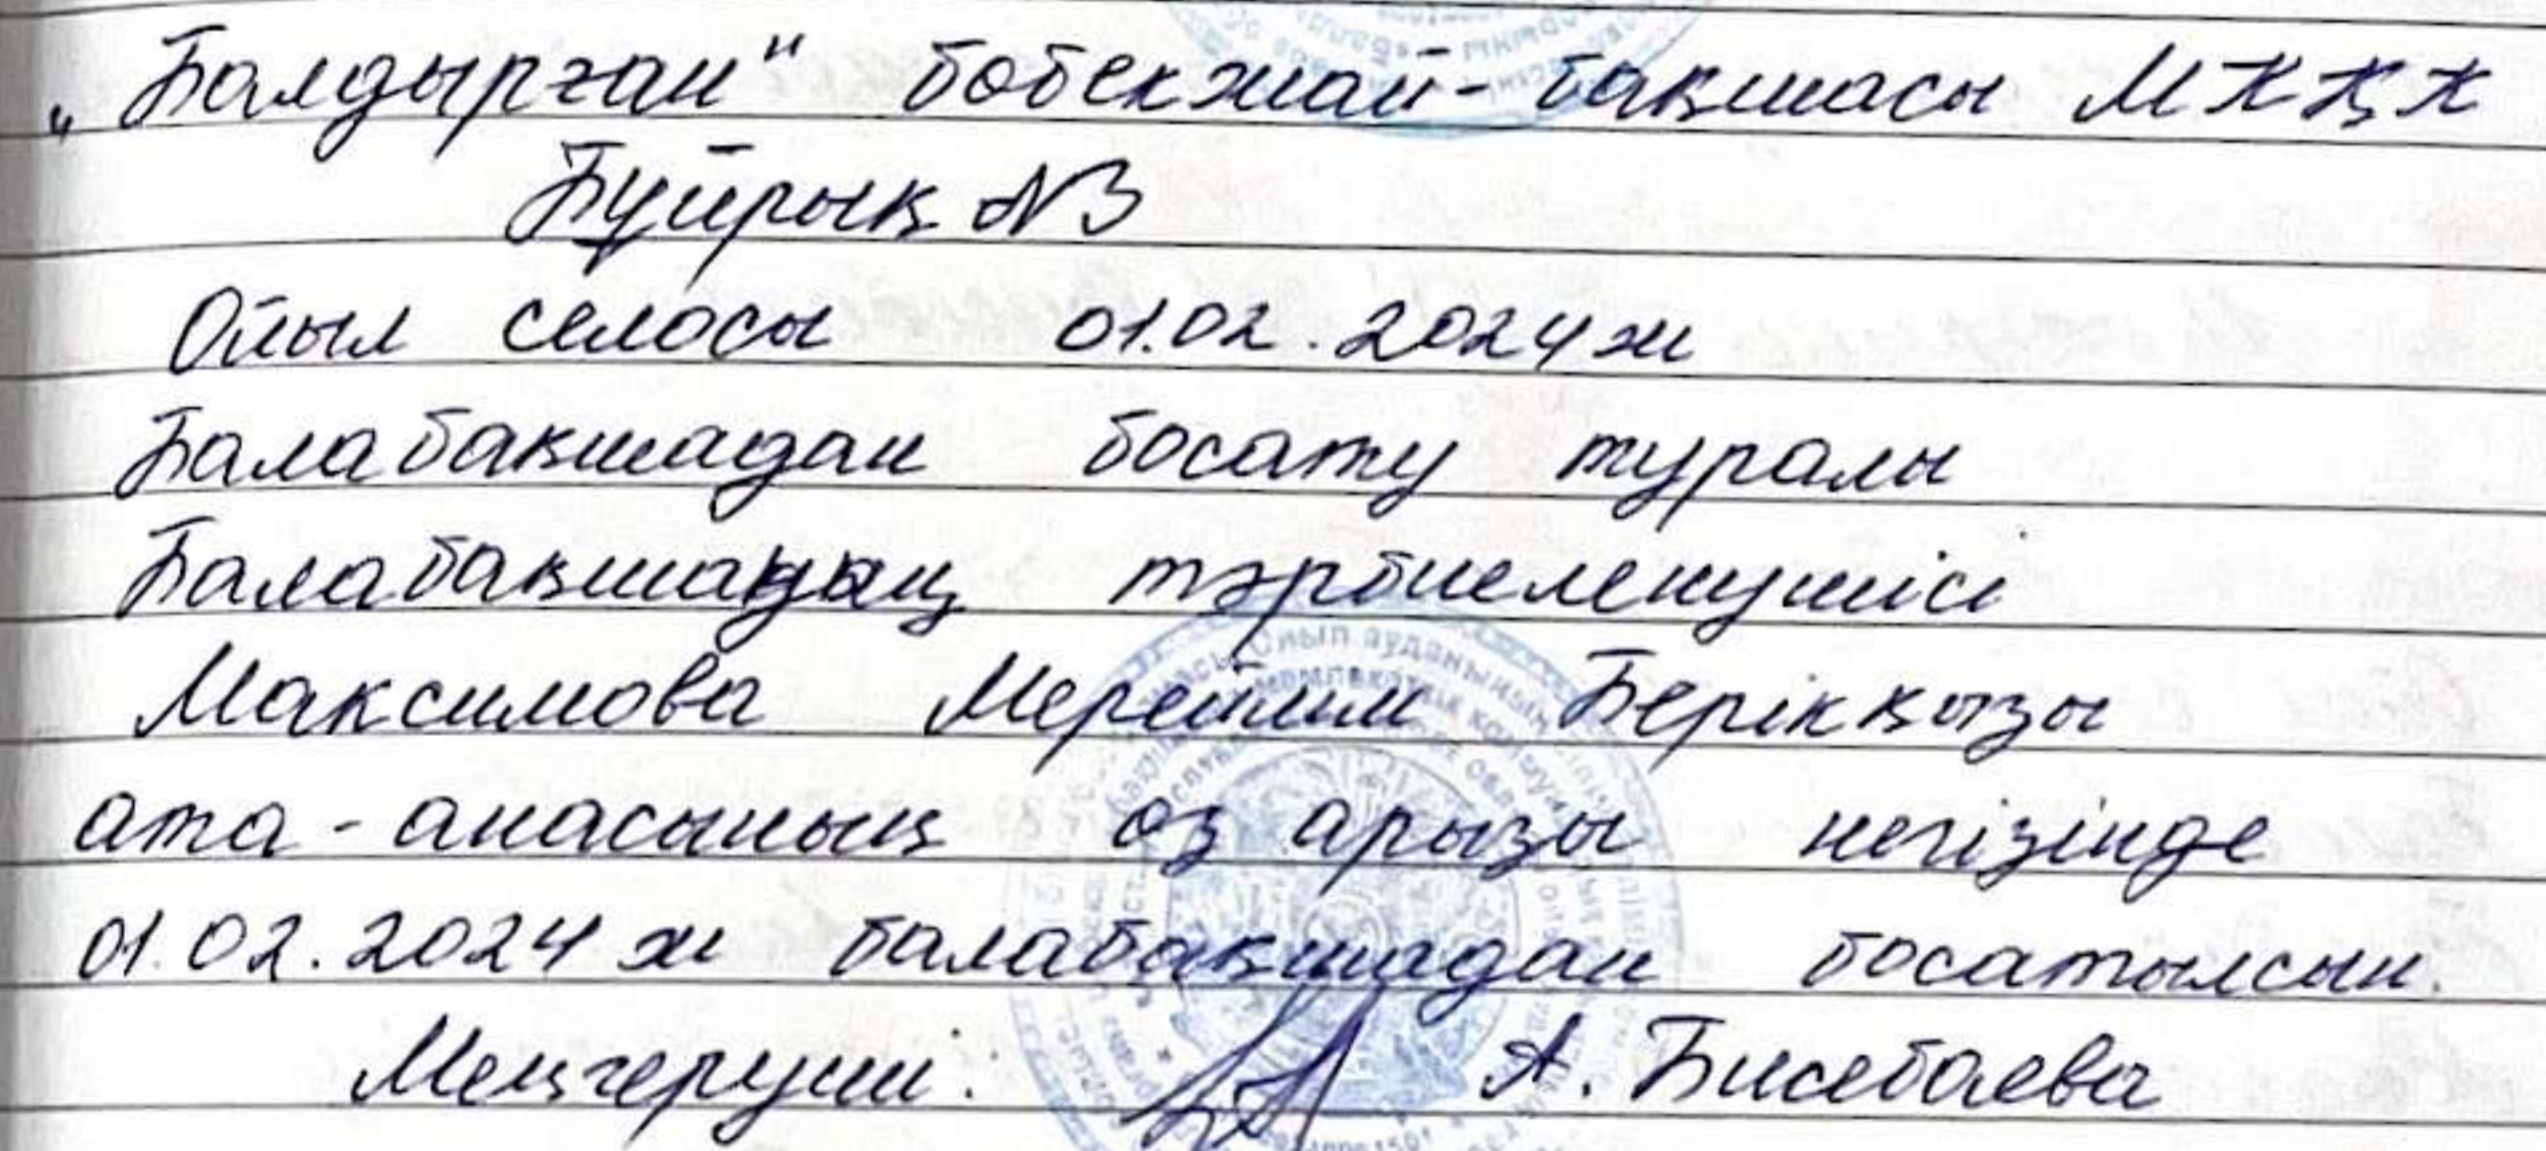 „Балдырған" бөбекжай-бақшасы МКҚК
Бұйрық №3
Ойыл селосы 01.02.2024 ж
Балабақшадан босату туралы
Балабақшаның тәрбиеленушісі
Максимова Мерейлим Берікқызы
ата-анасының өз арызы негізінде
01.02.2024 ж балабақшадан босатылсын.
Меңгеруші: А. Бисебаева